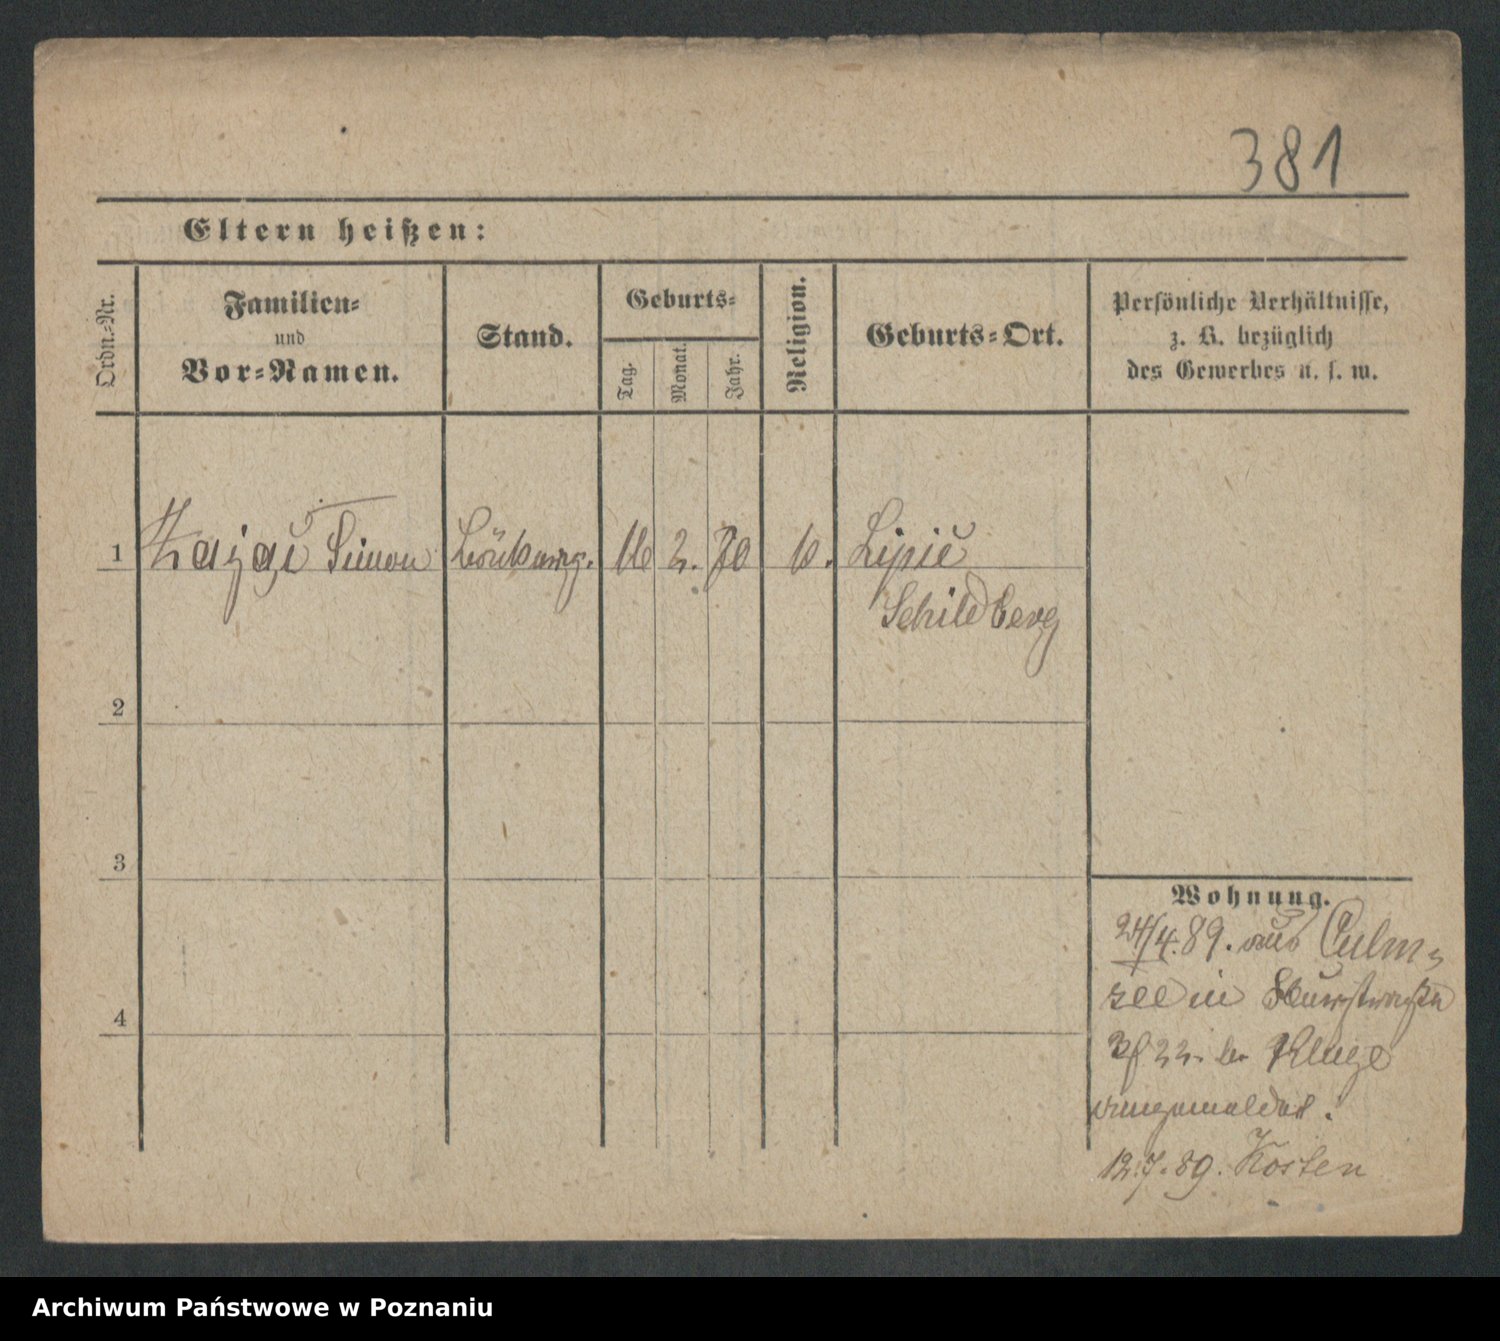 381
Eltern heißen:
Ordn.-Nr.
Familien-
und
Vor-Namen.
Stand.
Geburts-
Tag.
Monat.
Jahr.
Religion.
Geburts-Ort.
Persönliche Verhältnisse,
z. B. bezüglich
des Gewerbes u. s. w.
1
Simon
16
2.
70
k.
Lipie
Schildberg
2
3
4
Wohnung.
24/4.89. aus Culm-
see in
22. Kluge
angemeldet.
12.7.89. Kosten
Archiwum Państwowe w Poznaniu